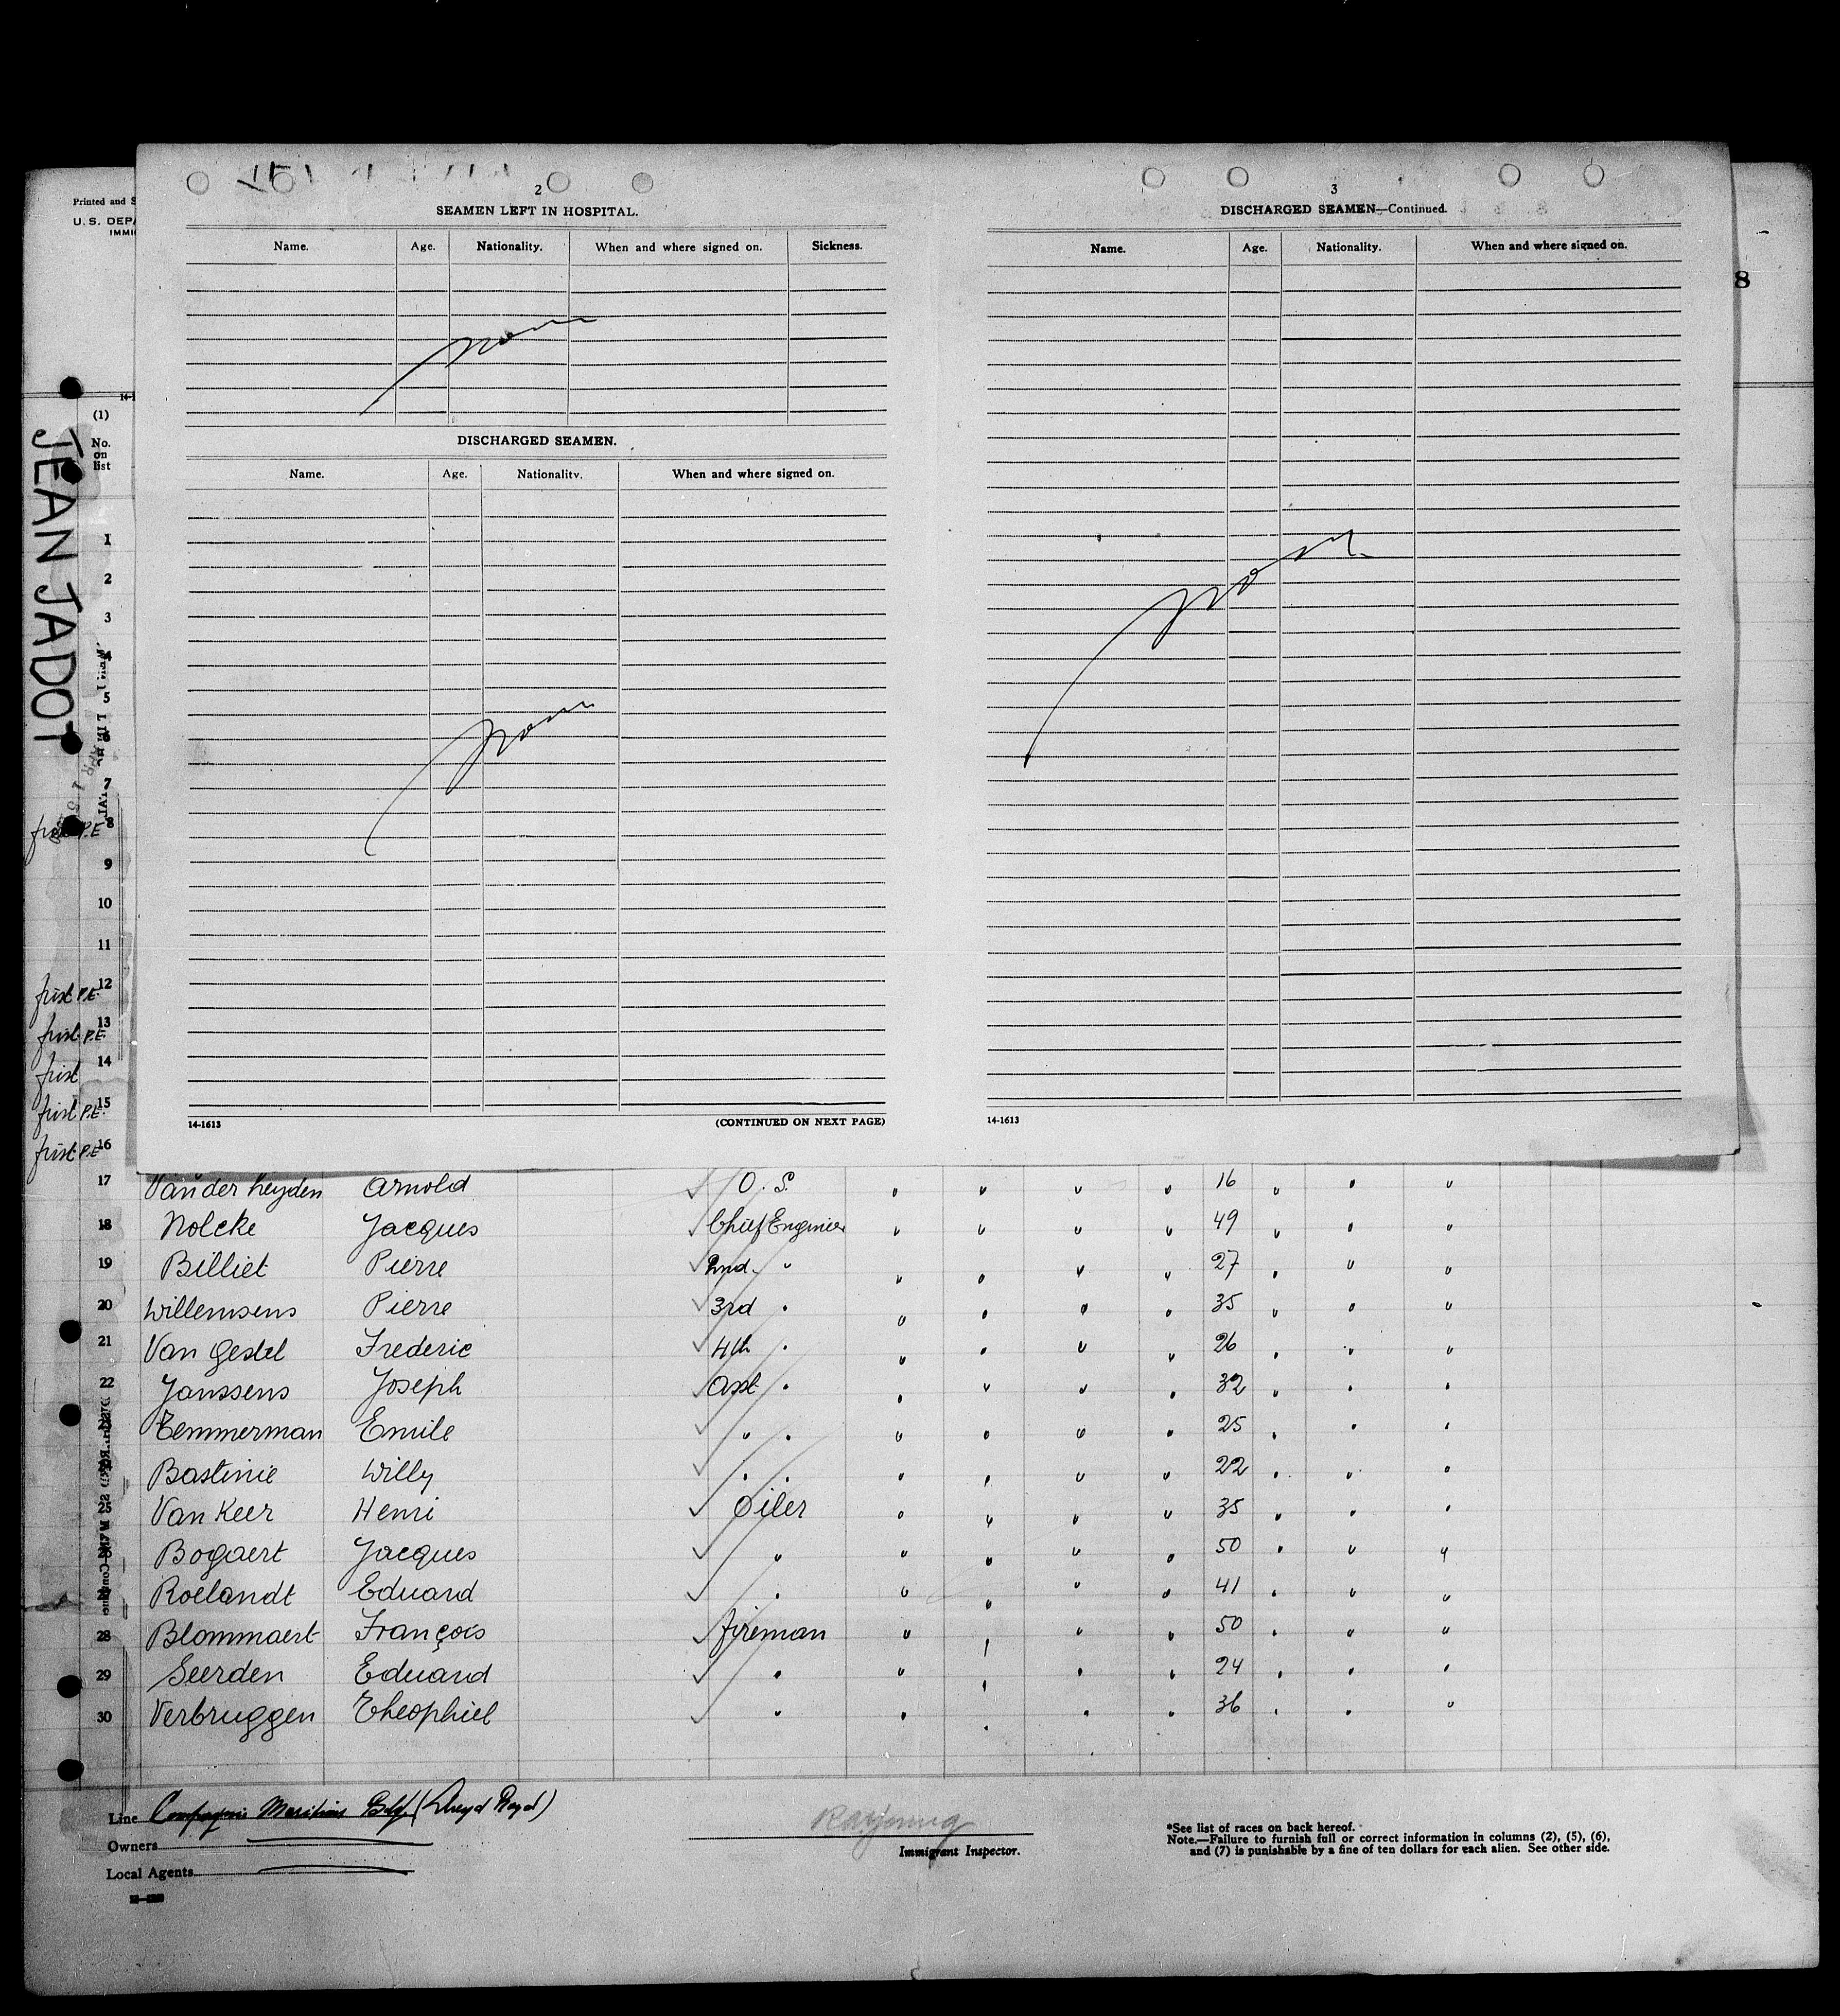 Printed and S
U. S. DEPA
IMMI
14-1
(1)
No. on list
JEAN JADOT
8
2
SEAMEN LEFT IN HOSPITAL.
Name. Age. Nationality. When and where signed on. Sickness.
none
DISCHARGED SEAMEN.
Name. Age. Nationality. When and where signed on.
none
14-1613 (CONTINUED ON NEXT PAGE)
3
DISCHARGED SEAMEN—Continued.
Name. Age. Nationality. When and where signed on.
none
14-1613
1
2
3
4
5
6
7
first P.E 8
9
10
11
first P.E. 12
first P.E. 13
first 14
first P.E. 15
first P.E. 16
17 Van der heyden Arnold O. S. " " " " 16 " " "
18 Nolcke Jacques Chief Engineer " " " " 49 " " "
19 Billiet Pierre 2nd " " " " " 27 " " "
20 Willemsens Pierre 3rd " " " " " 35 " " "
21 Van Gestel Frederic 4th " " " " " 26 " " "
22 Janssens Joseph Asst " " " " " 32 " " "
Temmerman Emile " " " " " " 25 " " "
Bastinie Willy " " " " " " 22 " " "
25 Van Keer Henri Oiler " " " " 35 " " "
Bogaert Jacques " " " " " 50 " " "
Roelandt Eduard " " " " " 41 " " "
28 Blommaert François fireman " " " " 50 " " "
29 Seerden Eduard " " " " " 24 " " "
30 Verbruggen Theophiel " " " " " 36 " " "
Line Compagnie Maritime Belge (Lloyd Royal)
Owners
Local Agents
Immigrant Inspector.
*See list of races on back hereof.
Note.—Failure to furnish full or correct information in columns (2), (5), (6),
and (7) is punishable by a fine of ten dollars for each alien. See other side.